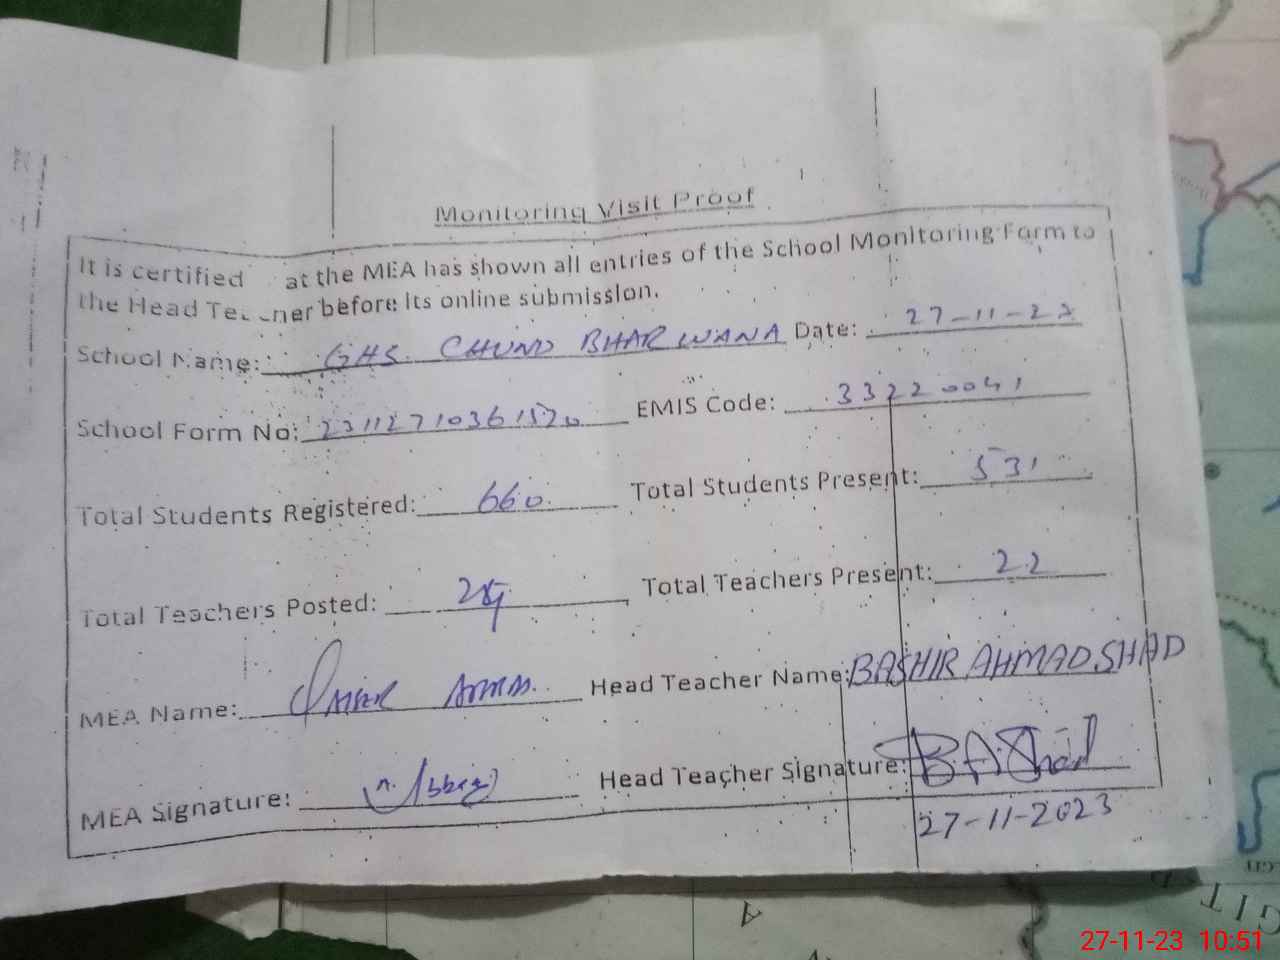 Monitoring Visit Proof
It is certified at the MEA has shown all entries of the School Monitoring Form to
the Head Teacher before its online submission.
School Name: GHS. CHUND BHARWANA Date: 27-11-23
School Form No: 23112710361520 EMIS Code: 33220041
Total Students Registered: 660 Total Students Present: 531
Total Teachers Posted: Total Teachers Present: 22
MEA Name: Head Teacher Name: BASHIR AHMAD SHAD
MEA Signature: Head Teacher Signature: BAShad
27-11-2023
27-11-23 10:51